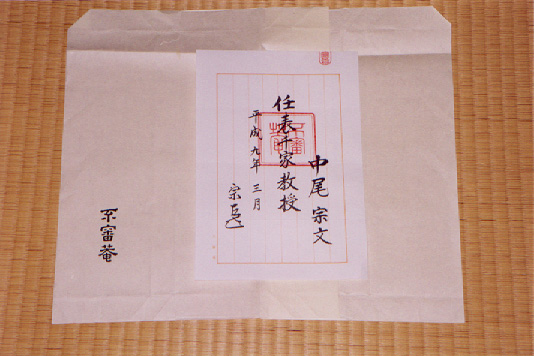 中尾宗文
任表千家教授
平成九年三月
宗
不審菴